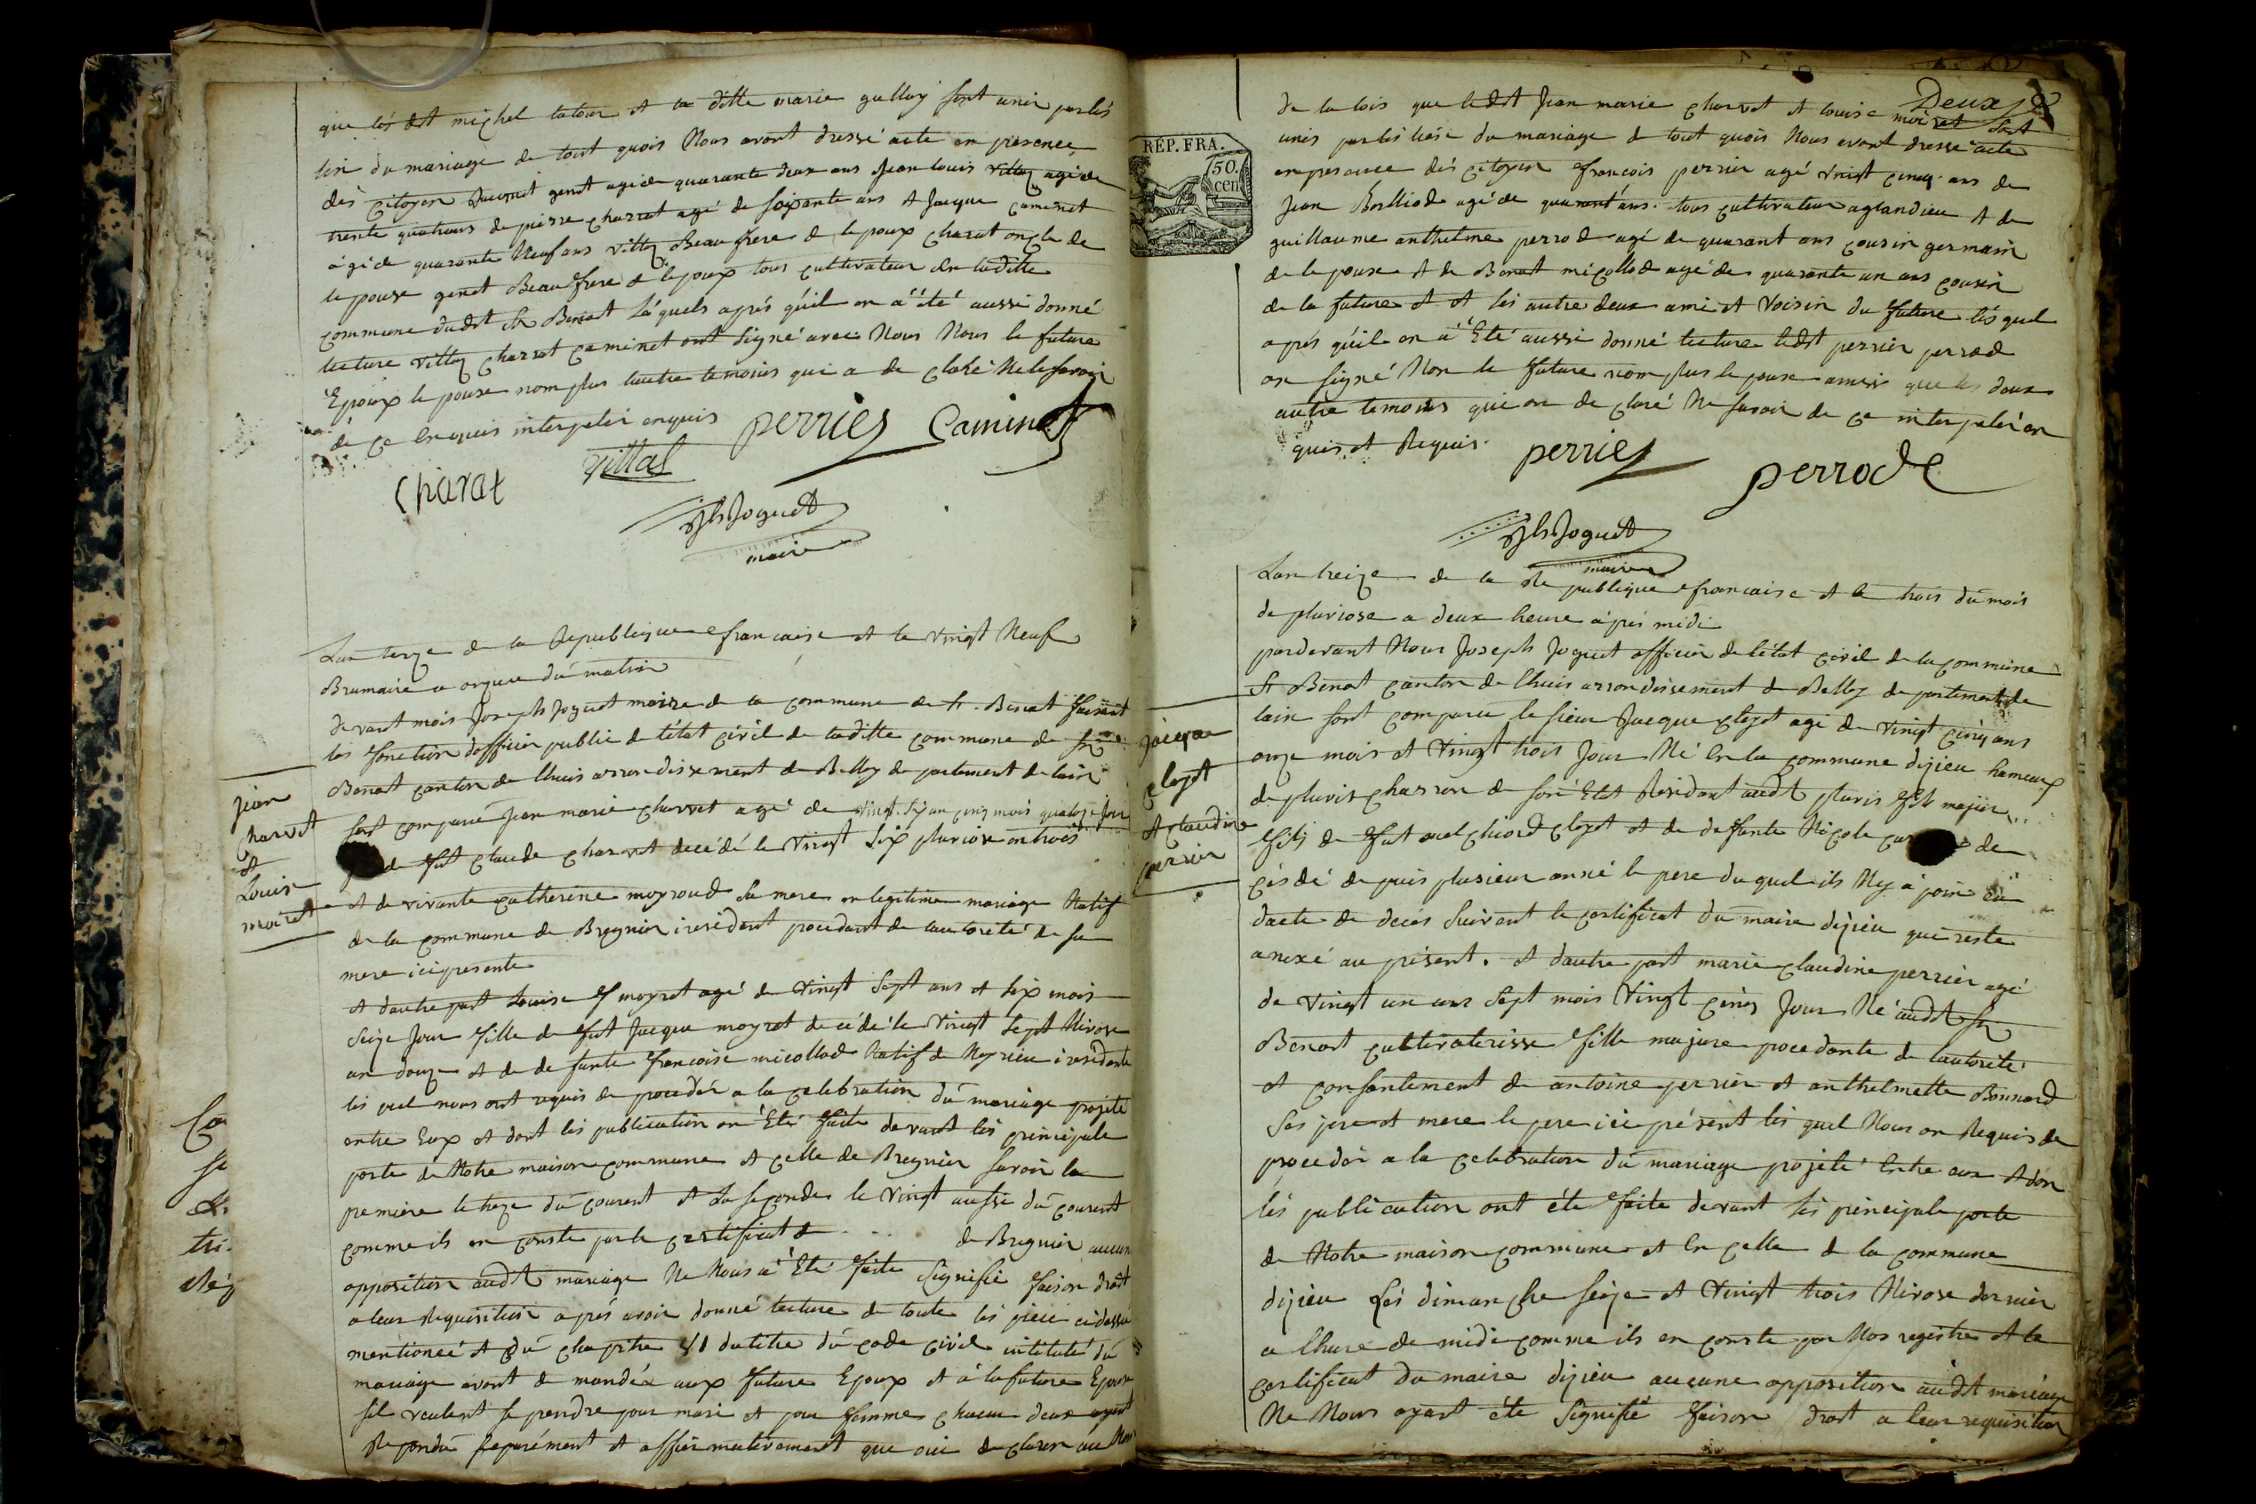 que les dt michel tatour et la ditte marie gulloy sont unir par les
lien du mariage de tout quois Nous avont dressé acte en présence
dès citoyen genet agé de quarante deux ans Jean louis vittoz agé de
trente quatrans de pierre charrat agé de soixante ans et Jacque caminet
agé de quarante Neuf ans vittoz Beau frere de lepoux charat oncle de
lepouse genet Beau frere de lepoux tous cultivateur de la ditte
commune dudt St Benoit léquels aprés quil on a été aussi donné
lecture vittoz charrat caminet ont signé avec Nous Nous le future
Epoux lepouse nom plus lautre temoins qui a de claré Ne le savoir
de ce Enquis interpeler enquis
perrier Caminet
Charat vittal
Jh Joguet
maire
Lan treze de la Republique francaise et le vingt Neuf
Brumaire a onzeure du matin
devant mois Joseph Joguet maire de la commune de St. Benoit faisant
les fonction dofficier public de létat civil de laditte commune de St
Benoit canton de lhuis arrondissement de Belley departement de lain
Jean
charvet
et
Louise
moiret
sont comparu Jean marie charvet agé de vingt six an cinq mois quatoze jour
de fut claude charvet decédé le vingt six pluviose an trois
et de vivante catherine moyroud sa mere en legitime mariage Natif
de la commune de Bregnier i residant procedant de lautorité de sa
mere ici presente
et dautre part Louise moyret agé de vingt sept ans et six mois
seize Jour fille de fut Jacque moyret decédé le vingt sept Nivose
an douze et de defunte francoise micollod Natif de Meyrieu i residante
les quel nous ont requis de proceder a la celebration du mariage projeté
entre Eux et dont les publication on Eté faite devant les principale
porte de Notre maison commune et celle de Bregnier savoir la
premiere le treze du courent et la seconde le vingt aussi du courent
comme ils en conste par le certificat de . . . de Bregnier aucune
opposition audt mariage Ne Nous a Eté faite signifié faison droit
a leur Requisition aprés avoir donné lecture de toute les piéce cidessu
mentionée et du chapitre VI du titre du code civil intitulé du
mariage avont de mandér aux future Epoux et a la future Epouse
sil veulent se prendre pour mari et pour femme chacun deux ayant
Repondu separément et affirmativement que oui declaron au Nom
Co
se
tri.
Deux
de la lois que ledt Jean marie charvet et louise moiret sont
unis par les lien du mariage de tout quois Nous avont dresse acte
en presance dés citoyen francois perrier agé vingt cinq ans de
Jean Borlliod agé de quarant ans. tous cultivateur aglandieu et de
guillaume anthelme perrod agé de quarant ans cousin germain
de lepouse et de Benoit micollod agé de quarante un ans cousin
de la future et et les autre deux ami et voisin du future lés quel
aprés quil on a Eté aussi donné lecture ledt perrier perrod
on signé Non le future nom plus lepouse ainsi que les deux
autre temoins qui on de claré Ne savoir de ce interpeler en
quis et Requis.
perrier perrode
Jh Joguet
maire
RÉP. FRA.
50.
cen
Lan treize de la Republique francaise et le trois du mois
de pluviose a deux heure aprés midi
pardevant Nous Joseph Joguet officier de létat civil de la commune
St Benoit canton de lhuis arrondissement de Belley departement de
lain sont comparu le sieur Jacque clopt agé de vingt cinq ans
Jacque
clopt
et claudine
perrier
onze mois et vingt trois Jour Né En la commune dizieu hameaux
de pluvis charron de son Etat Résidant audt pluvis fils majeur
fils de fut melchiord clopt et de defunte Nicole de
césdé de puis plusieur anné le pere du quel ils Ny a poin eu
dacte de deces suivant le certificat du maire dizieu qui reste
anexé au présent. et dautre part marie claudine perrier agé
de vingt un ans sept mois vingt cinq Jour Né audt St
Benoit cultivaterisse fille majure procedante de lautorité
et consentement de antoine perrier et anthelmette Bonnard
ses pere et mere le pere ici présent les quel Nous on Requis de
proceder a la celebration du mariage projeté Entre eux et don
lés publication ont été faite devant les principale porte
de Notre maison commune et En celle de la commune
dizieu Les dimanche seize et vingt trois Nivose dernier
a lheure de midi comme ils en conste par Nos registre et le
certificat du maire dizieu aucune opposition audt mariage
Ne Nous ayant été signifié faison droit a leur requisition